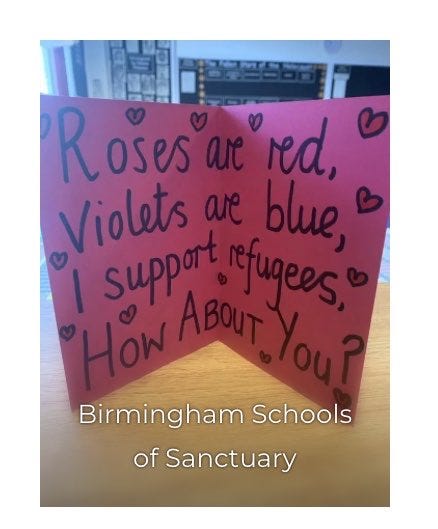 Roses are red,
Violets are blue,
I support refugees,
How About You?
Birmingham Schools
of Sanctuary